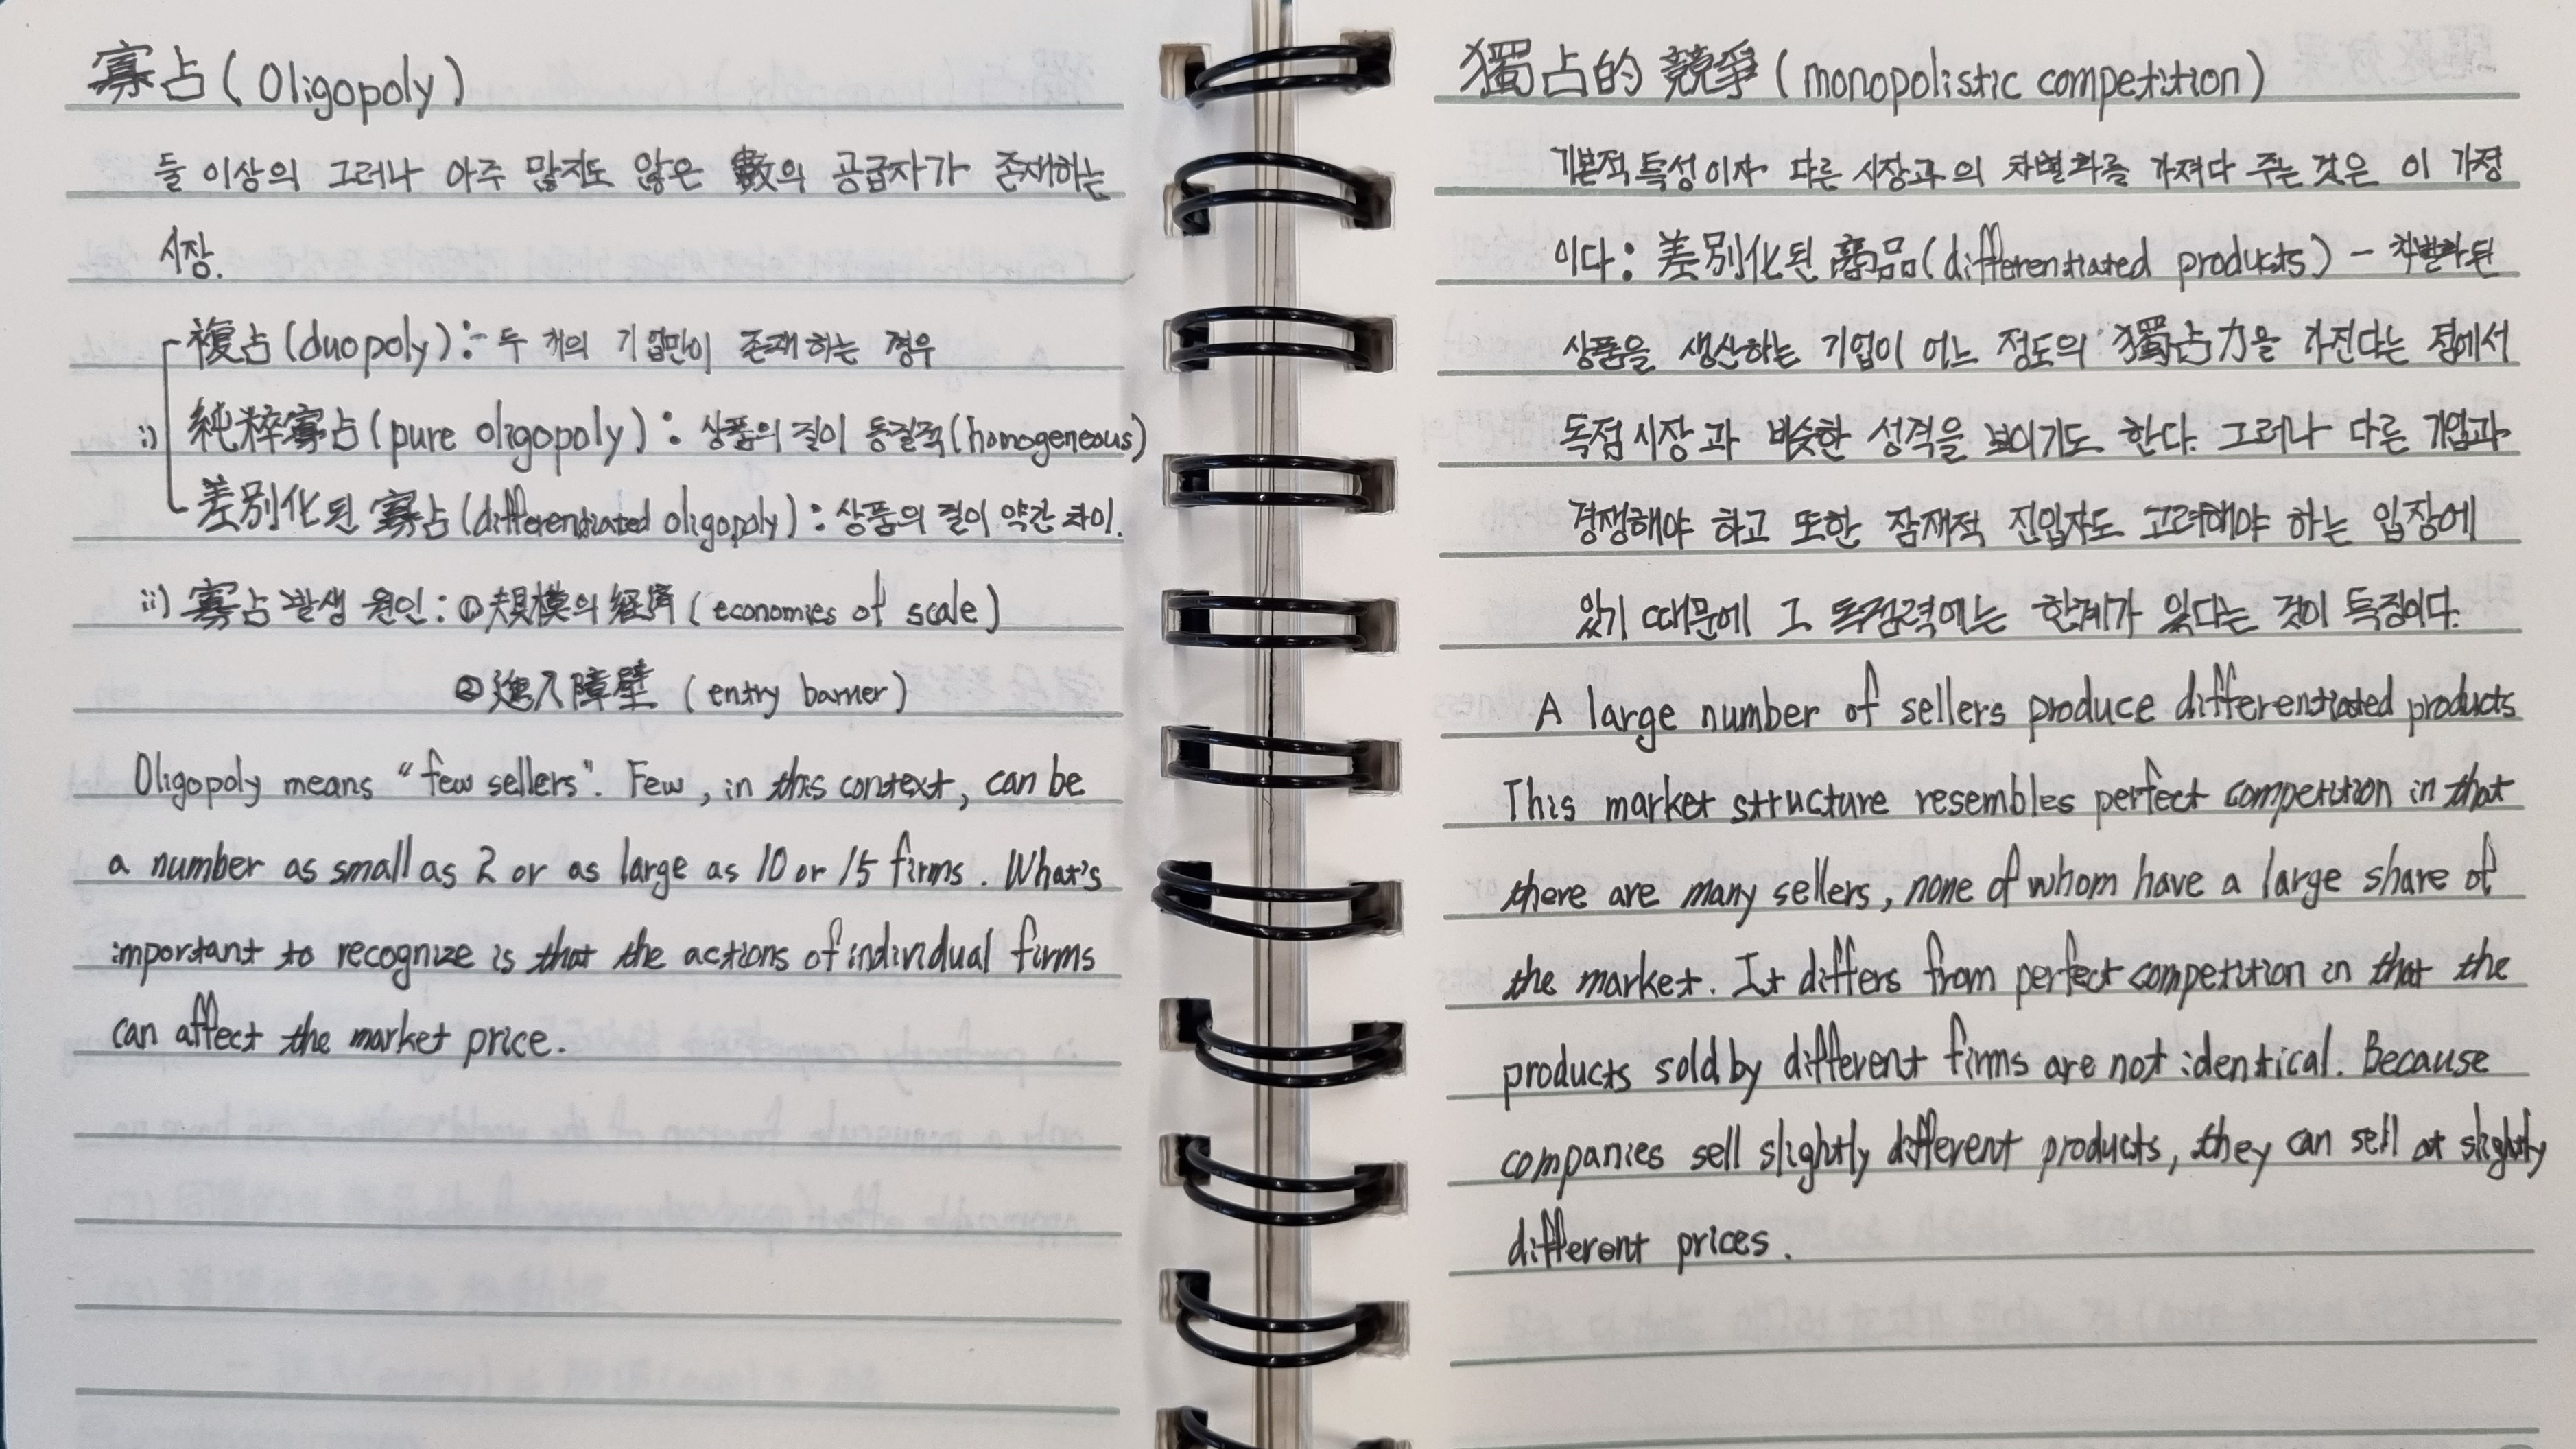 寡占(Oligopoly)
둘 이상의 그러나 아주 많지도 않은 數의 공급자가 존재하는
시장.
複占(duopoly): 두 개의 기업만이 존재하는 경우
i) 純粹寡占(pure oligopoly): 상품의 질이 동질적(homogeneous)
差別化된 寡占(differentiated oligopoly): 상품의 질이 약간 차이.
ii) 寡占 발생 원인: ① 規模의 經濟(economies of scale)
② 進入障壁 (entry barrier)
Oligopoly means "few sellers". Few, in this context, can be
a number as small as 2 or as large as 10 or 15 firms. What's
important to recognize is that the actions of individual firms
can affect the market price.
獨占的 競爭(monopolistic competition)
기본적 특성이자 다른 시장과의 차별화를 가져다 주는 것은 이 가정
이다: 差別化된 商品(differentiated products) - 차별화된
상품을 생산하는 기업이 어느 정도의 獨占力을 가진다는 점에서
독점시장과 비슷한 성격을 보이기도 한다. 그러나 다른 기업과
경쟁해야 하고 또한 잠재적 진입자도 고려해야 하는 입장에
있기 때문에 그 독점력에는 한계가 있다는 것이 특징이다.
A large number of sellers produce differentiated products
This market structure resembles perfect competition in that
there are many sellers, none of whom have a large share of
the market. It differs from perfect competition in that the
products sold by different firms are not identical. Because
companies sell slightly different products, they can sell at slightly
different prices.